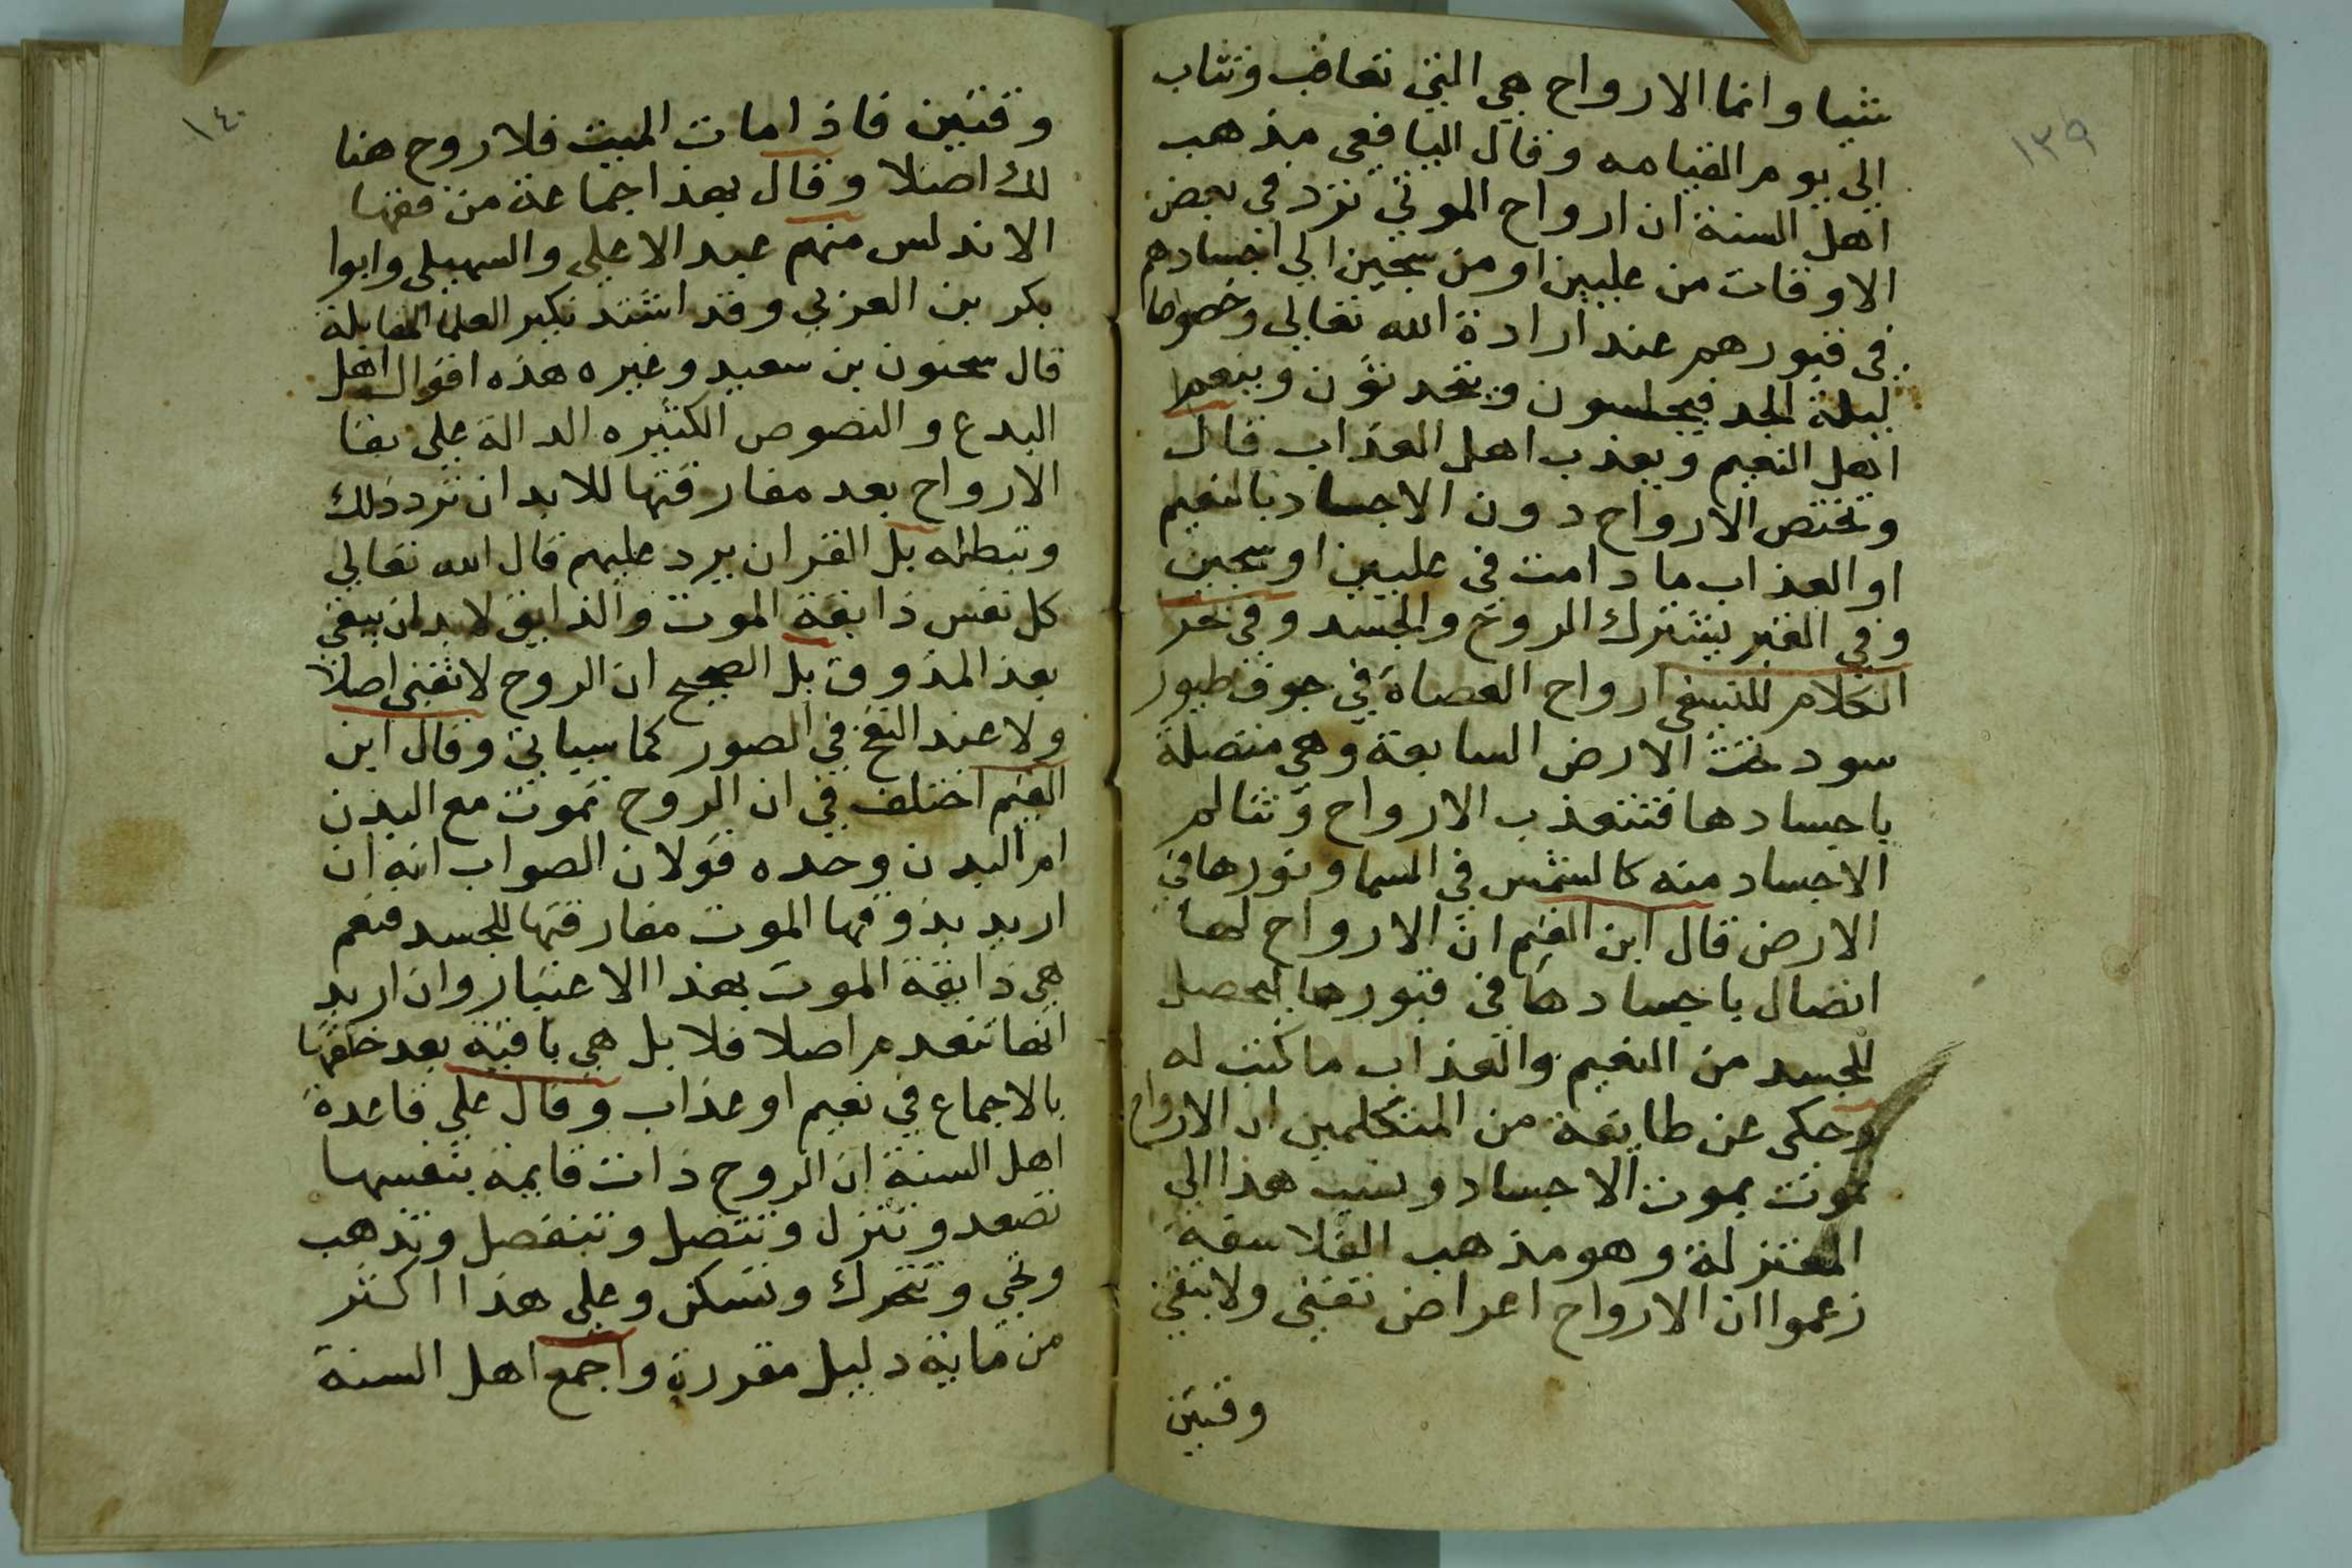 ١٣٩
شيا وانما الارواح هي التي تعاقب وتثاب
الي يوم القيامه وقال اليافعي مذهب
اهل السنة ان ارواح الموتي ترد في بعض
الاوقات من عليين او من سجين الي اجسادهم
في قبورهم عند ارادة الله تعالي وخصوصا
ليلة الجمعة فيجلسون ويتحدثون وينعم
اهل النعيم ويعذب اهل العذاب قال
وتختص الارواح دون الاجساد بالنعيم
او العذاب ما دامت في عليين او سجين
وفي القبر يشترك الروح والجسد وفي بحر
الكلام للنسفي ارواح العصاة في جوف طيور
سود تحت الارض السابعة وهي متصلة
باجسادها فتتعذب الارواح وتتالم
الاجساد منه كالشمس في السما ونورها في
الارض قال ابن القيم ان الارواح لها
اتصال باجسادها في قبورها ليحصل
للجسد من النعيم والعذاب ما كتب له
وحكي عن طايفة من المتكلمين ان الارواح
تموت بموت الاجساد ونسب هذا الي
المعتزلة وهو مذهب الفلاسفة
زعموا ان الارواح اعراض تفني ولا تبقي
وقتين
١٤٠
وقتين فاذا مات الميت فلا روح هنا
لك اصلا وقال بهذا جماعة من فقها
الاندلس منهم عبد الاعلي والسهيلي وابوا
بكر بن العربي وقد اشتد نكير العلما لمقابلة
قال سحنون بن سعيد وغيره هذه اقوال اهل
البدع والنصوص الكثيره الدالة علي بقا
الارواح بعد مفارقتها للابدان ترد ذلك
وتبطله بل القران يرد عليهم قال الله تعالي
كل نفس ذايقة الموت والذايق لابد ان يبقي
بعد المذوق بل الصحيح ان الروح لا تفني اصلا
ولا عند النفخ في الصور كما سياتي وقال ابن
القيم اختلف في ان الروح تموت مع البدن
ام البدن وحده قولان الصواب انه ان
اريد بذوقها الموت مفارقتها للجسد فنعم
هي ذايقة الموت بهذا الاعتبار وان اريد
انها تنعدم اصلا فلا بل هي باقية بعد خلقها
بالاجماع في نعيم او عذاب وقال علي قاعدة
اهل السنة ان الروح ذات قايمة بنفسها
تصعد وتنزل وتتصل وتنفصل وتذهب
وتجي وتتحرك وتسكن وعلي هذا اكثر
من ماية دليل مقررة واجمع اهل السنة